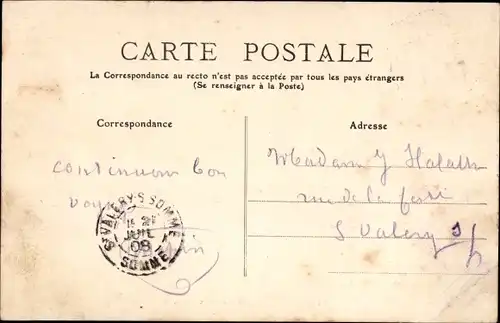 CARTE POSTALE
La Correspondance au recto n'est pas acceptée par tous les pays étrangers
(Se renseigner à la Poste)
Correspondance
Adresse
continuons bon
Madame
rue de la
S Valery s/
ST VALERY-S-SOMME
JUIL
08
SOMME